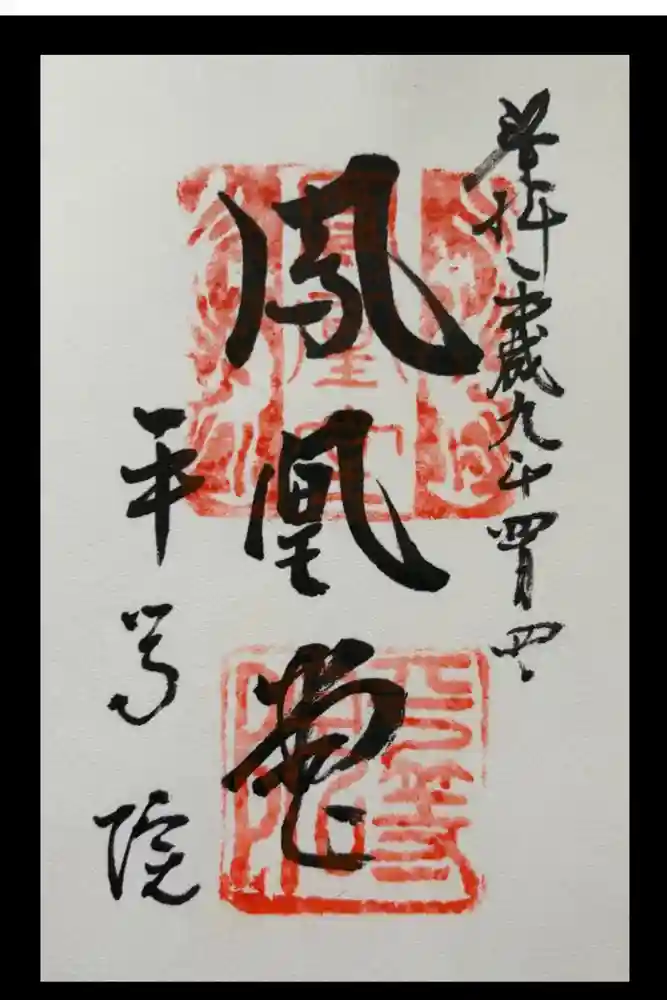 奉拝 平成九年四月四日
鳳凰堂
平等院